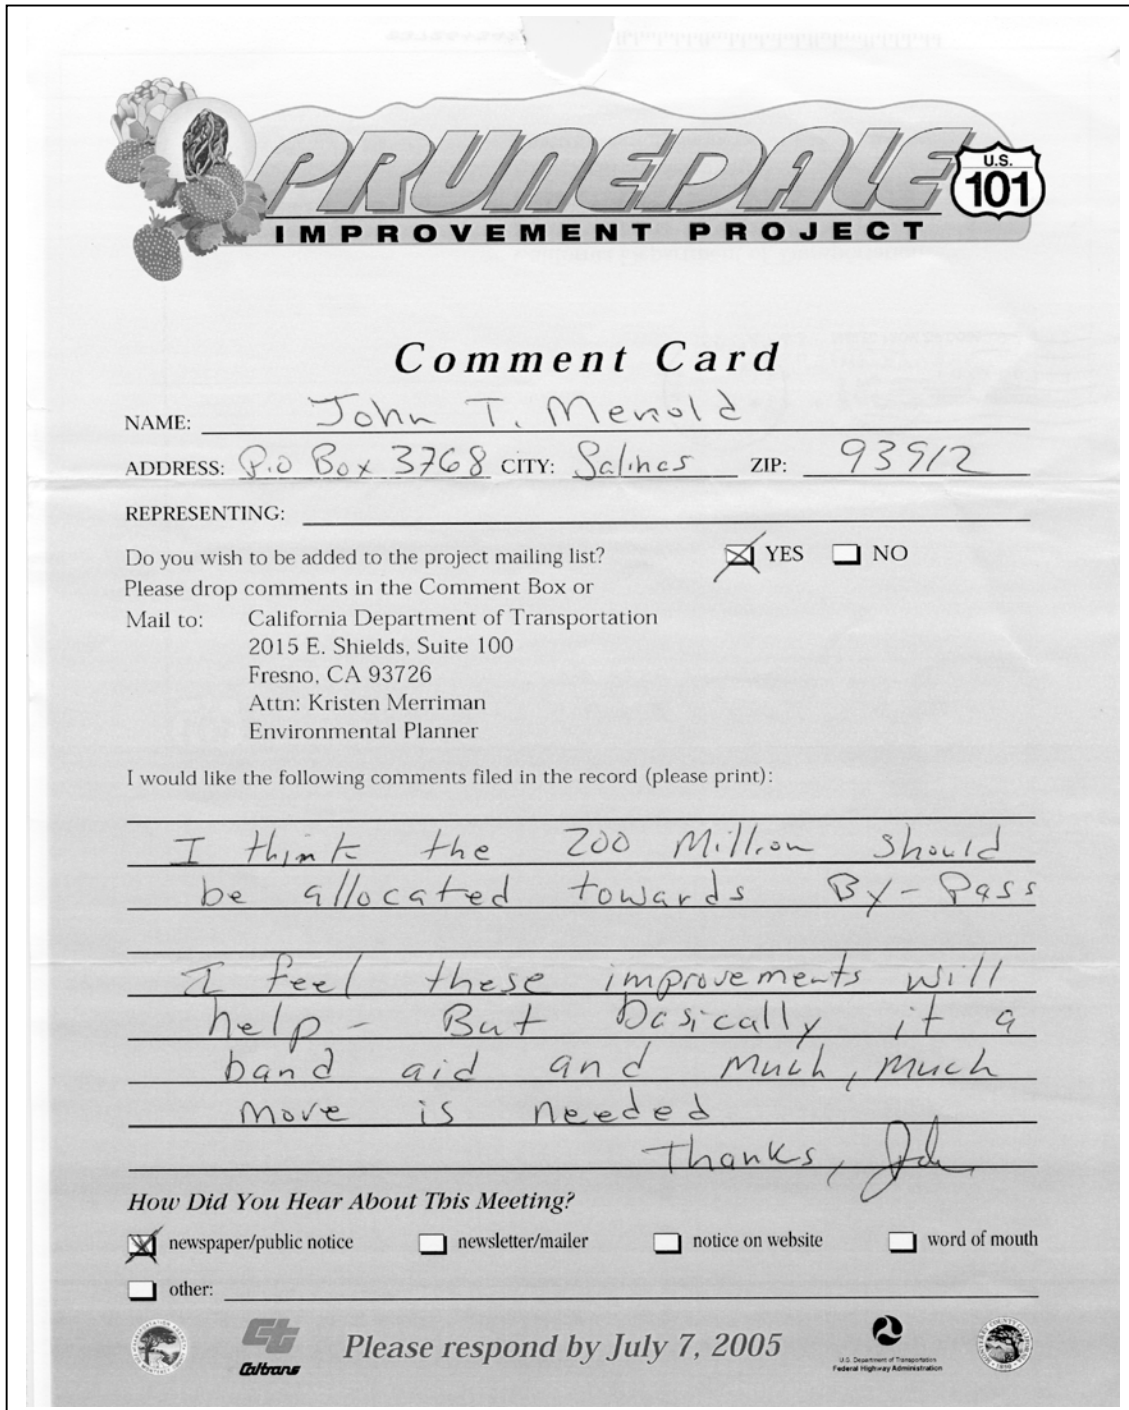 PRUNEDALE
U.S.
101
IMPROVEMENT PROJECT
Comment Card
NAME: John T. Menold
ADDRESS: P.O Box 3768 CITY: Salinas ZIP: 93912
REPRESENTING:
Do you wish to be added to the project mailing list? YES NO
Please drop comments in the Comment Box or
Mail to: California Department of Transportation
2015 E. Shields, Suite 100
Fresno, CA 93726
Attn: Kristen Merriman
Environmental Planner
I would like the following comments filed in the record (please print):
I think the 200 Million should
be allocated towards By-Pass
I feel these improvements will
help - But basically it a
band aid and Much, Much
more is needed
Thanks, John
How Did You Hear About This Meeting?
newspaper/public notice newsletter/mailer notice on website word of mouth
other:
Caltrans
Please respond by July 7, 2005
U.S. Department of Transportation
Federal Highway Administration